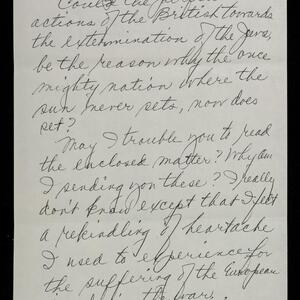 Could the
actions of the British towards
the extermination of the Jews,
be the reason why the once
mighty nation where the
sun never sets, now does
set?
May I trouble you to read
the enclosed matter? Why am
I sending you these? I really
don't know except that I felt
a rekindling of heartache
I used to experience for
the suffering of the European
the wars.